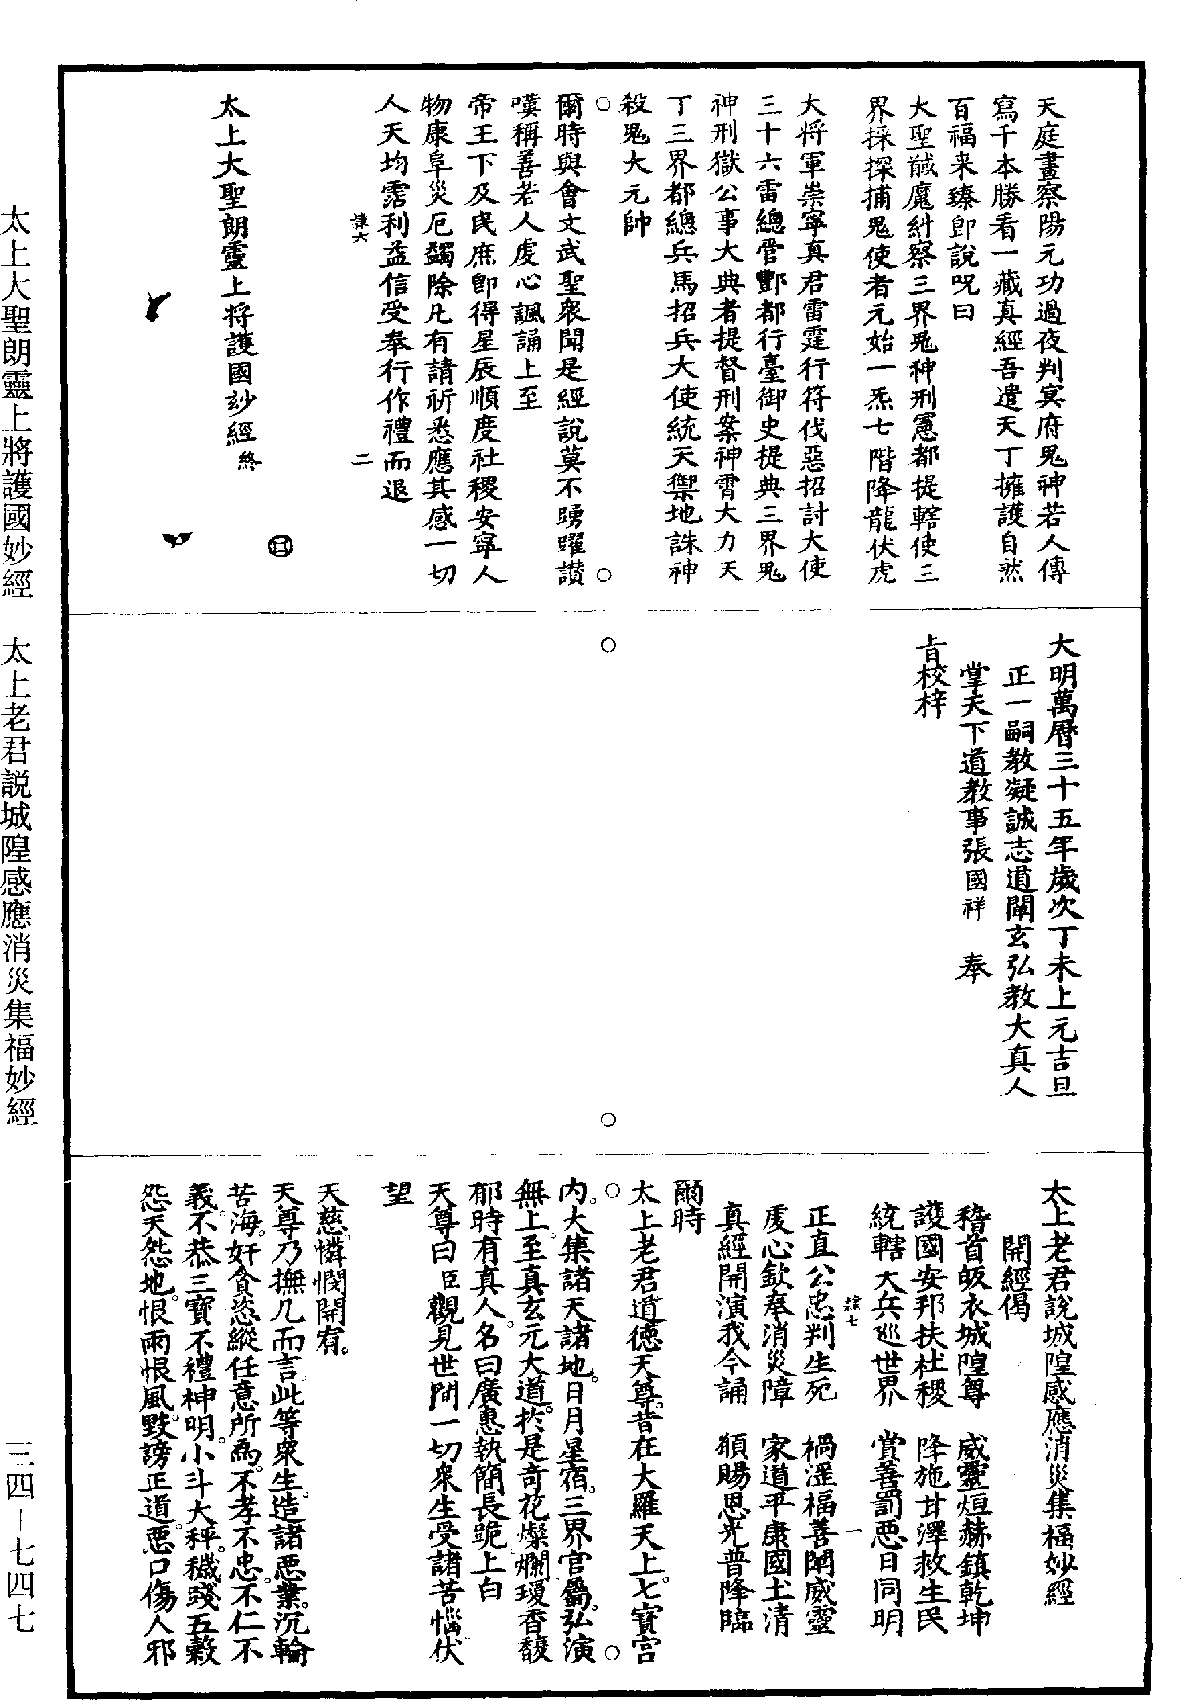 天庭晝察陽元功過夜判冥府鬼神若人傳
寫千本勝看一藏真經吾遣天丁擁護自然
百福来臻即說呪曰
大聖馘魔糾察三界鬼神刑憲都提轄使三
界採探捕鬼使者元始一炁七階降龍伏虎
大將軍崇寧真君雷霆行符伐惡招討大使
三十六雷總管酆都行臺御史提典三界鬼
神刑獄公事大典者提督刑案神霄大力天
丁三界都總兵馬招兵大使統天禦地誅神
殺鬼大元帥
爾時與會文武聖衆聞是經說莫不踴曜讃
嘆稱善若人虔心諷誦上至
帝王下及民庶即得星辰順度社稷安寧人
物康阜災厄蠲除凡有請祈悉應其感一切
人天均霑利益信受奉行作禮而退
隸六 二
太上大聖朗靈上将護國妙經 終
大明萬曆三十五年歲次丁未上元吉旦
正一嗣教凝誠志道闡玄弘教大真人
掌天下道教事張國祥 奉
旨校梓
太上老君說城隍感應消災集福妙經
開經偈
稽首皈衣城隍尊 威靈烜赫鎮乾坤
護國安邦扶社稷 降施甘澤救生民
統轄大兵巡世界 賞善罰惡日同明
正直公忠判生死 禍淫福善闡威靈
隸七 一
虔心欽奉消災障 家道平康國土清
真經開演我今誦 願賜恩光普降臨
爾時
太上老君道德天尊昔在大羅天上七寶宮
内大集諸天諸地日月星宿三界官屬弘演
無上至真玄元大道於是奇花燦爛瓊香馥
郁時有真人名曰廣惠執簡長跪上白
天尊曰臣觀見世間一切衆生受諸苦惱伏
望
天慈憐憫開宥
天尊乃撫几而言此等衆生造諸惡業沉輪
苦海奸貪恣縱任意所為不孝不忠不仁不
義不恭三寳不禮神明小斗大秤穢殘五穀
怨天怨地恨雨恨風毀謗正道惡口傷人邪
太上大聖朗靈上將護國妙經　太上老君説城隍感應消災集福妙經
三四－七四七